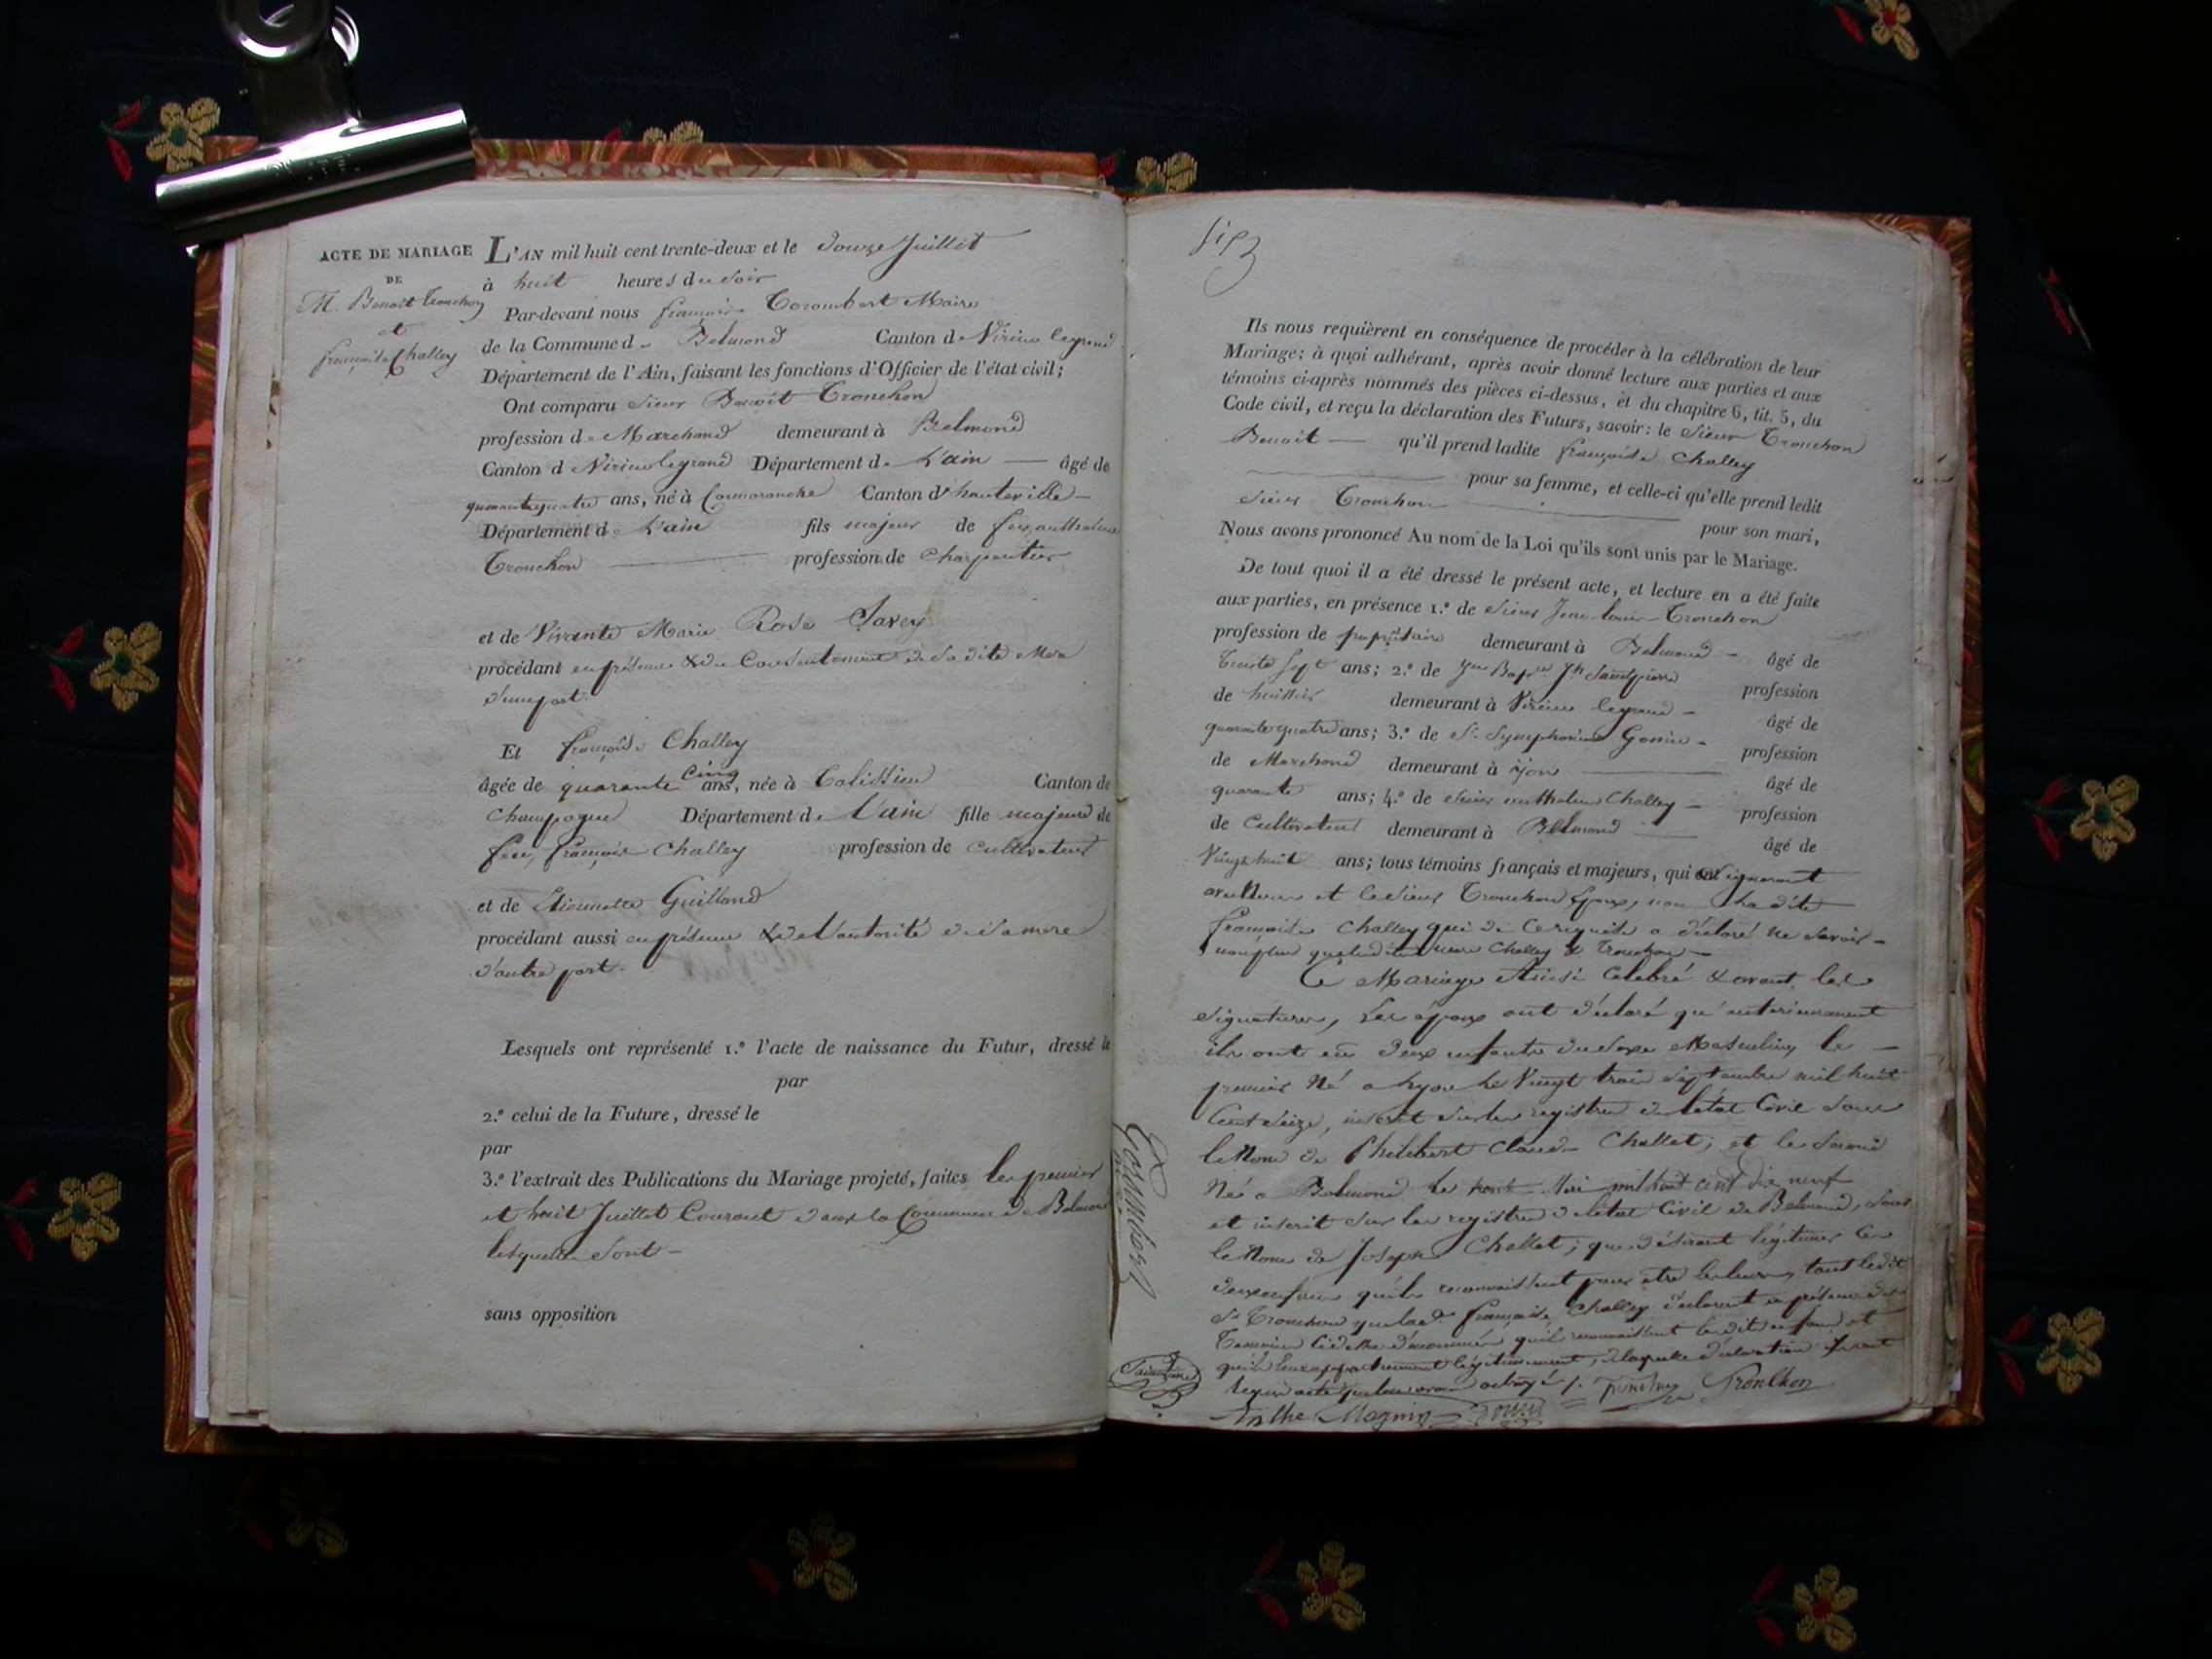 ACTE DE MARIAGE
DE
M. Benoit Tronchon
et
françoise Challey
L'AN mil huit cent trente-deux et le douze Juillet
à huit heures du soir
Par-devant nous françois Corombert Maire
de la Commune de Belmond Canton de Virieu legrand
Département de l'Ain, faisant les fonctions d'Officier de l'état civil;
Ont comparu sieur Benoit Tronchon
profession de Marchand demeurant à Belmond
Canton d Virieu legrand Département de L'ain — âgé de
quarante quatre ans, né à Cormaranche Canton d'hauteville —
Département de L'ain fils majeur de feu anthelme
Tronchon — profession de charpentier
et de Vivante Marie Rose Savey
procédant en présence & du Consentement de sa dite Mere
d'une part.
Et françoise Challey
âgée de quarante cinq ans, née à Talissieu Canton de
Champagne Département de l'ain fille majeure de
feu, françois Challey profession de cultivateur
et de Etiennette Guilland
procédant aussi en présence & de l'autorité de sa mere
d'autre part.
Lesquels ont représenté 1.º l'acte de naissance du Futur, dressé le
par
2.º celui de la Future, dressé le
par
3.º l'extrait des Publications du Mariage projeté, faites les premier
et huit Juillet Courant dans la Commune de Belmond
lesquelles sont —
sans opposition
Ils nous requièrent en conséquence de procéder à la célébration de leur
Mariage; à quoi adhérant, après avoir donné lecture aux parties et aux
témoins ci-après nommés des pièces ci-dessus, et du chapitre 6, tit. 5, du
Code civil, et reçu la déclaration des Futurs, savoir: le sieur Tronchon
Benoit — qu'il prend ladite françoise Challey
— pour sa femme, et celle-ci qu'elle prend ledit
sieur Tronchon — pour son mari,
Nous avons prononcé Au nom de la Loi qu'ils sont unis par le Mariage.
De tout quoi il a été dressé le présent acte, et lecture en a été faite
aux parties, en présence 1.º de sieur Jean louis Tronchon
profession de propriétaire demeurant à Belmond — âgé de
trente sept ans; 2.º de Jean Bapte Jh Saintpierre profession
de huissier demeurant à Virieu legrand — âgé de
quarante quatre ans; 3.º de Sr Symphorien — profession
de Marchand demeurant à Lyon — âgé de
quarante ans; 4.º de sieur anthelme Challey — profession
de Cultivateur demeurant à Belmond — âgé de
Vingt huit ans; tous témoins français et majeurs, qui ont signé
avec nous et le sieur Tronchon Epoux, non La dite
françoise Challey qui de ce requise a déclaré ne savoir —
non plus que Challey & Tronchon —
Ce Mariage Ainsi Celebré & avant les
signatures, Les époux ont déclaré qu'anterieurement
ils ont eu deux enfants du sexe Masculin, le —
premier Né a Lyon le Vingt trois septembre mil huit
Cent seize, inscrit sur les registres de l'état Civil sous
le Nom de Philibert Claude Challet; et le second
Né a Belmond le Mai mil huit cent dix neuf
et inscrit sur les registres de l'état Civil de Belmond, sous
le Nom de Joseph Challet; que désirant légitimer Ces
deux enfans qu'ils reconnaissent pour être les leurs, tant ledit
Sr Tronchon que lade françoise Challey déclarent en présence des
Temoins ci dessus dénommés qu'ils reconnaissent lesdits enfans et
qu'ils leurs appartiennent légitimement, de laquelle déclaration
requis acte que leur avons octroyé
Tronchon
Anthe Magnin
Corombert
Saintpierre